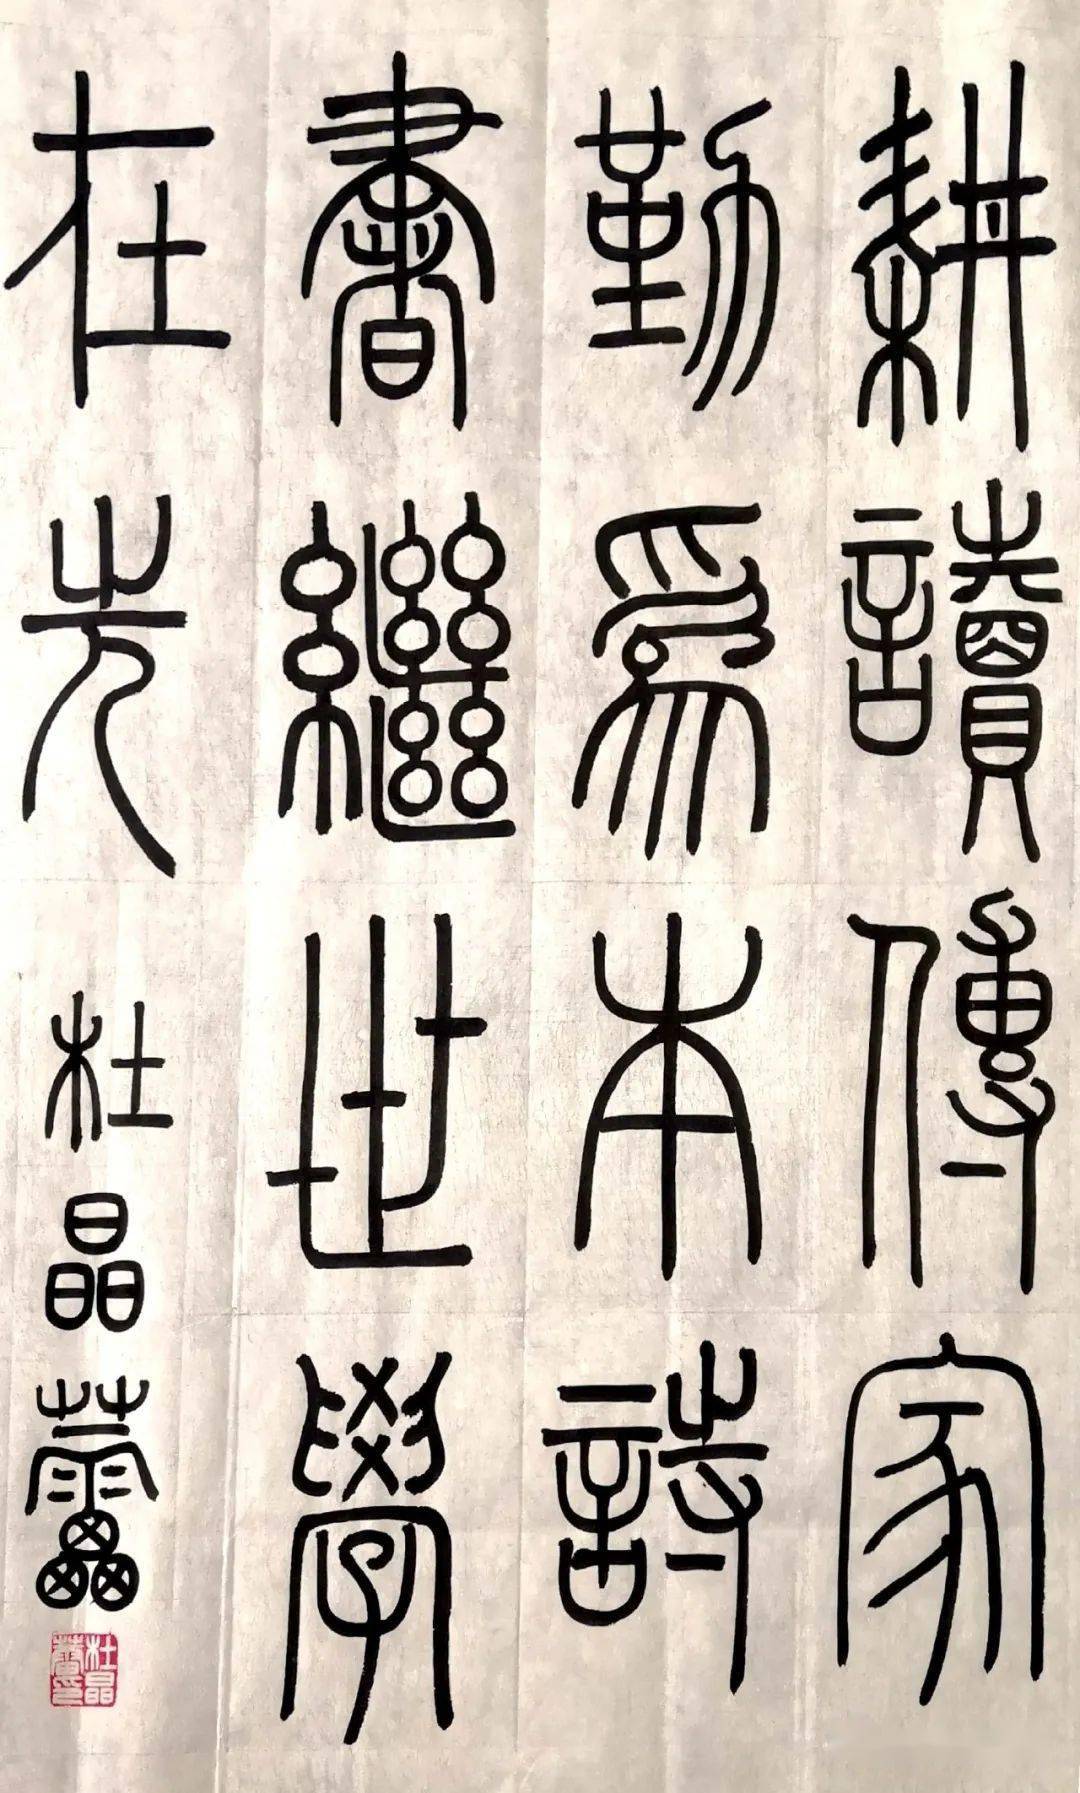 耕讀傳家
勤爲本詩
書繼世學
在先
杜晶蕾
杜晶
蕾印